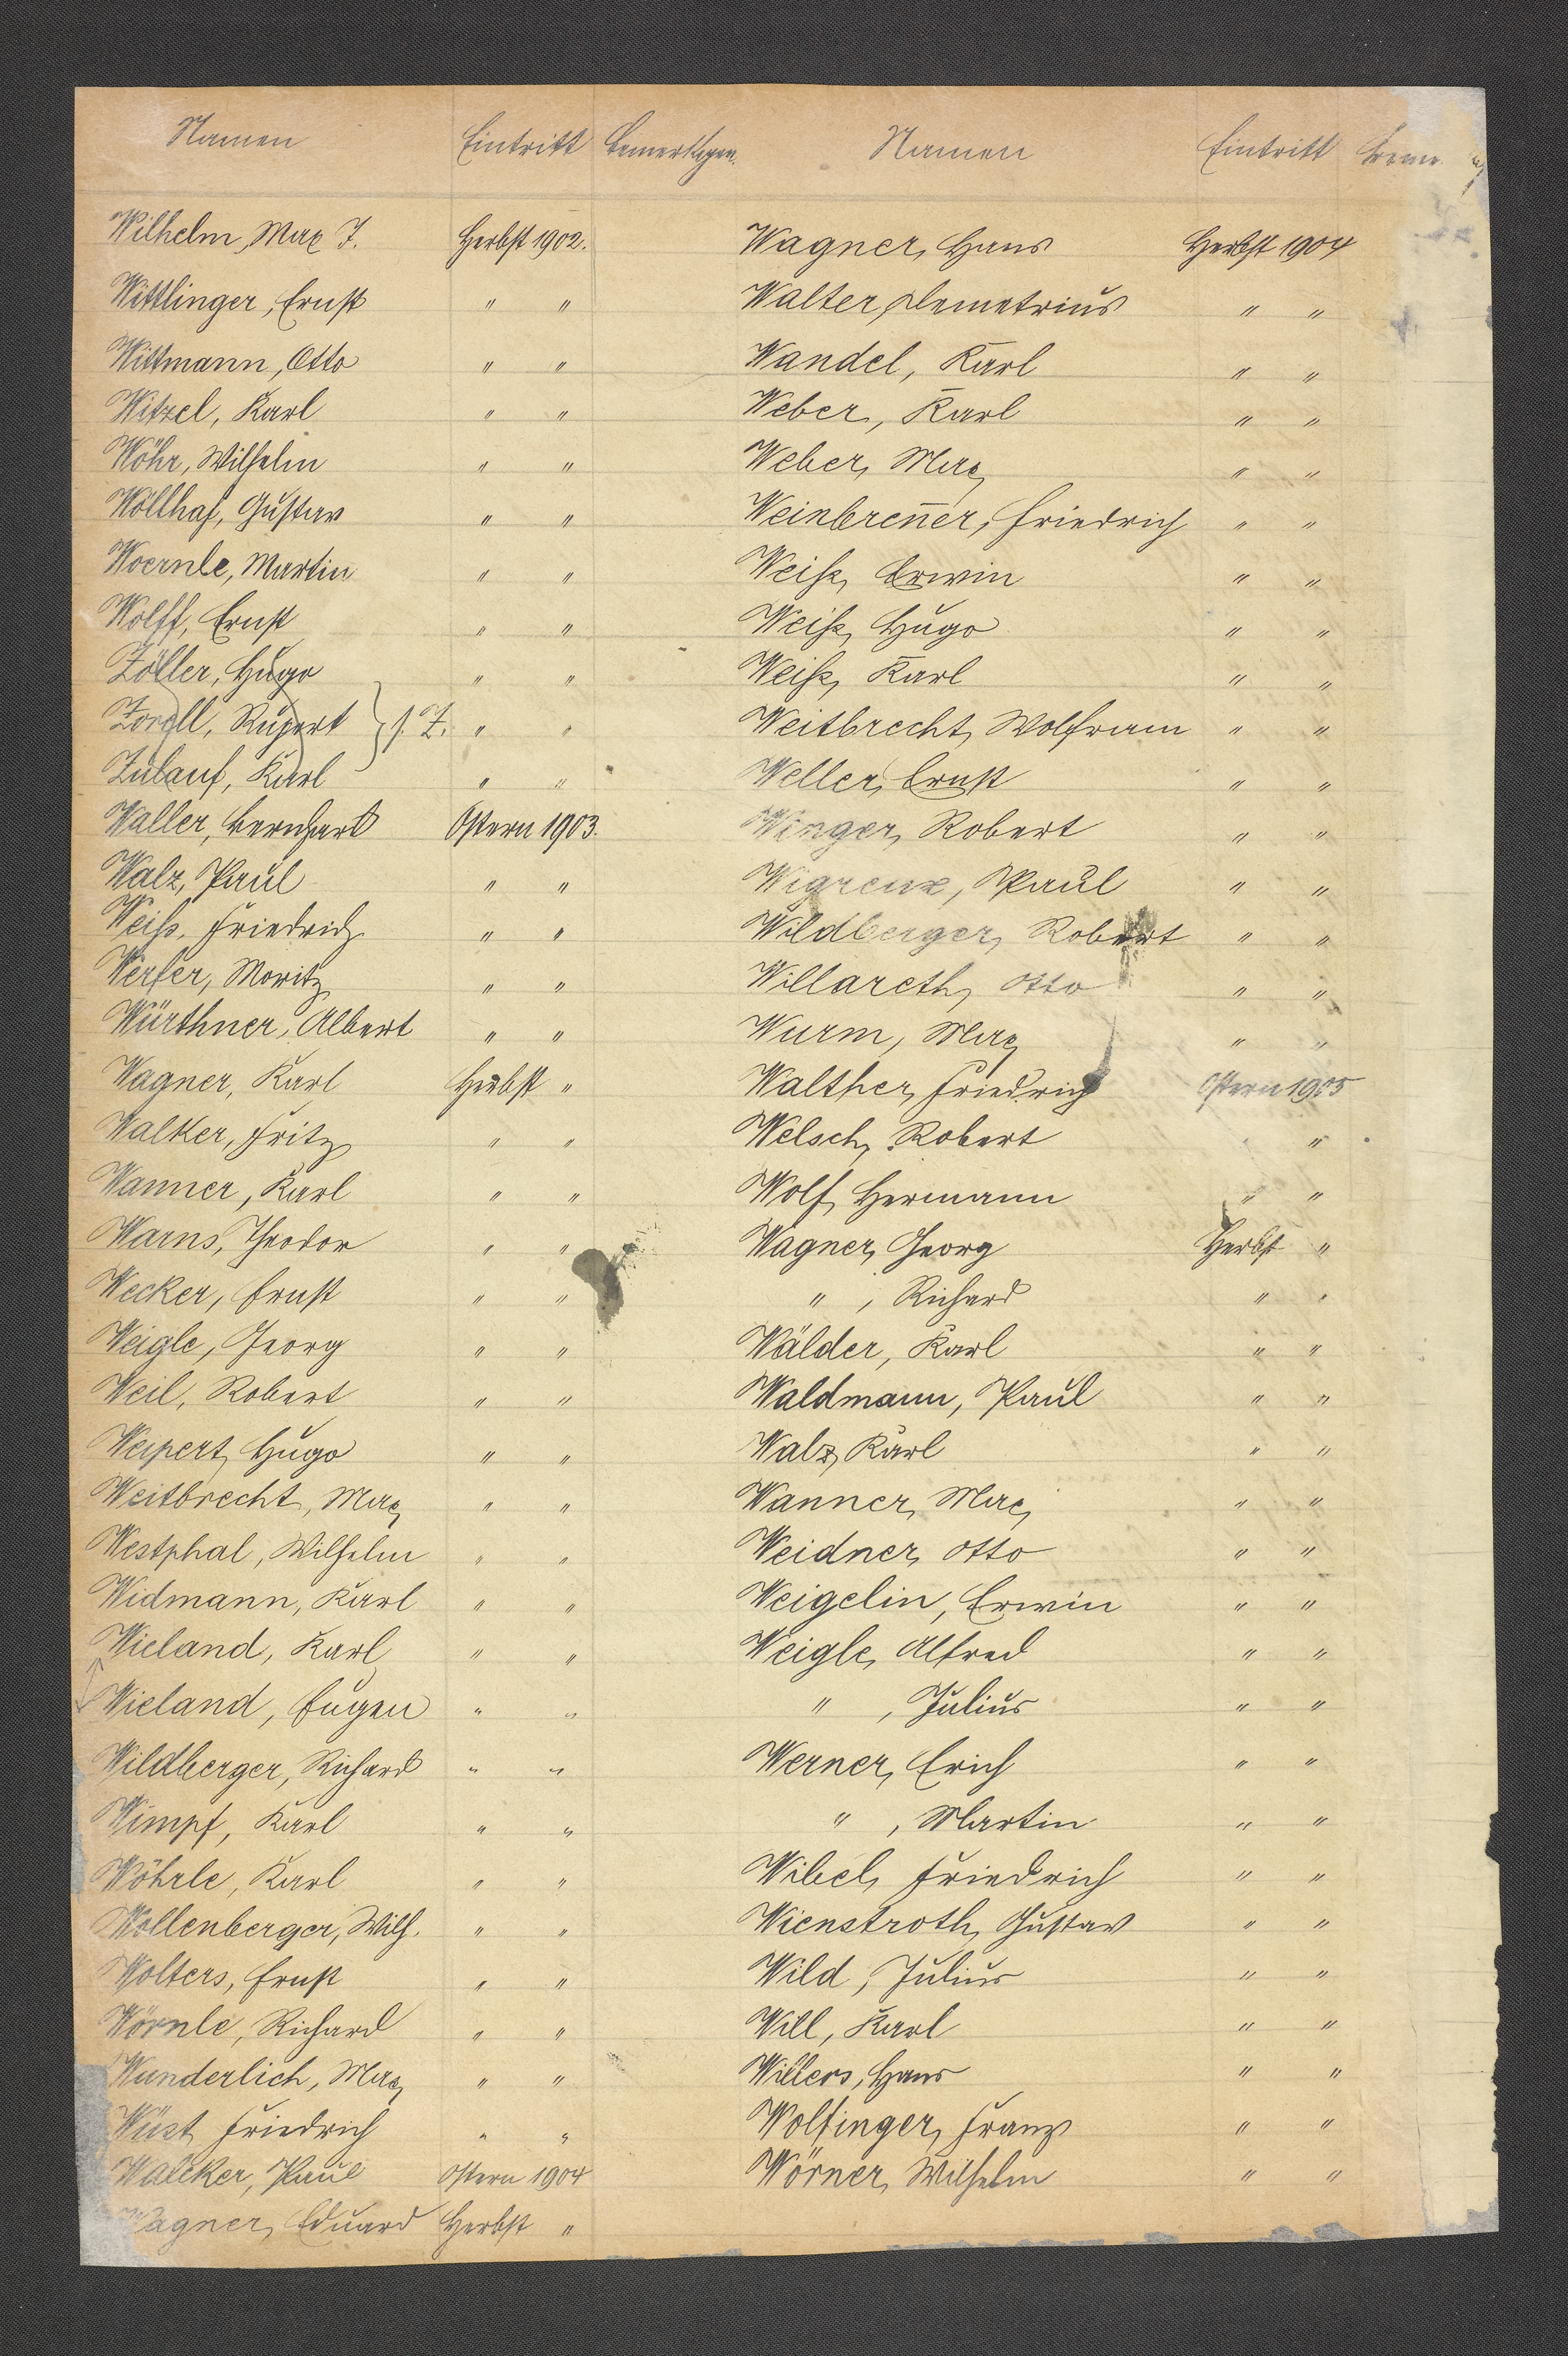 Namen Eintritt Bemerkgen.
Wilhelm, Max J. Herbst 1902.
Wittlinger, Ernst " "
Wittmann, Otto " "
Witzel, Karl " "
Wöhr, Wilhelm " "
Wöllhaf, Gustav " "
Woernle, Martin " "
Wolff, Ernst " "
Zöller, Hugo " "
Zorell, Rupert } s. Z. " "
Zulauf, Karl " "
Waller, Bernhard Ostern 1903.
Walz, Paul " "
Weiß, Friedrich " "
Werfer, Moritz " "
Würthner, Albert " "
Wagner, Karl Herbst "
Walker, Fritz " "
Wanner, Karl " "
Warns, Theodor " "
Wecker, Ernst " "
Weigle, Georg " "
Weil, Robert " "
Weipert, Hugo " "
Weitbrecht, Max " "
Westphal, Wilhelm " "
Widmann, Karl " "
Wieland, Karl " "
Wieland, Eugen " "
Wildberger, Richard " "
Wimpf, Karl " "
Wöhrle, Karl " "
Wollenberger, Wilh. " "
Wolters, Ernst " "
Wörnle, Richard " "
Wunderlich, Max " "
Wüst, Friedrich " "
Walcker, Paul Ostern 1904
Wagner, Eduard Herbst "
Namen Eintritt
Wagner, Hans Herbst 1904
Walter, Demetrius " "
Wandel, Karl " "
Weber, Karl " "
Weber, Max " "
Weinbren̄er, Friedrich " "
Weiß, Erwin " "
Weiß, Hugo " "
Weiß, Karl " "
Weitbrecht, Wolfram " "
Weller, Ernst " "
Winger, Robert " "
Paul " "
Wildberger, Robert " "
Willareth, Otto " "
Wurm, Max " "
Walther, Friedrich Ostern 1905
Welsch, Robert " "
Wolf, Hermann " "
Wagner, Georg Herbst "
" , Richard " "
Wälder, Karl " "
Waldmann, Paul " "
Walz, Karl " "
Wanner, Max " "
Weidner, Otto " "
Weigelin, Erwin " "
Weigle, Alfred " "
" , Julius " "
Werner, Erich " "
" , Martin " "
Wibel, Friedrich " "
Wienstroth, Gustav " "
Wild, Julius " "
Will, Karl " "
Willers, Hans " "
Wolfinger, Franz " "
Wörner, Wilhelm " "